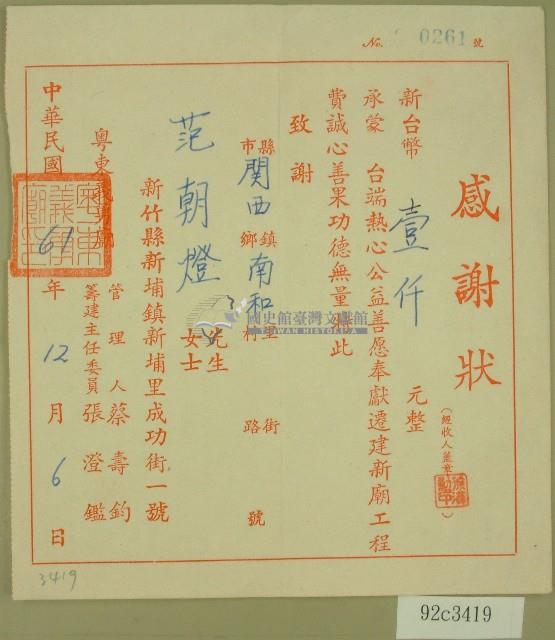 No. 0261 號
感謝狀
(經收人蓋章)
承蒙 台端熱心公益善愿奉獻遷建新廟工程
新台幣 壹仟 元整
費誠心善果功德無量耑此
致謝
縣市 関西 鎮鄉 南和 里村 街路 號
范朝燈 先生女士
新竹縣新埔鎮新埔里成功街一號
粵東義勇廟
管理人 蔡壽鈞
籌建主任委員 張澄鑑
中華民國 61 年 12 月 6 日
國史館臺灣文獻館
TAIWAN HISTORICA
3419
92c3419